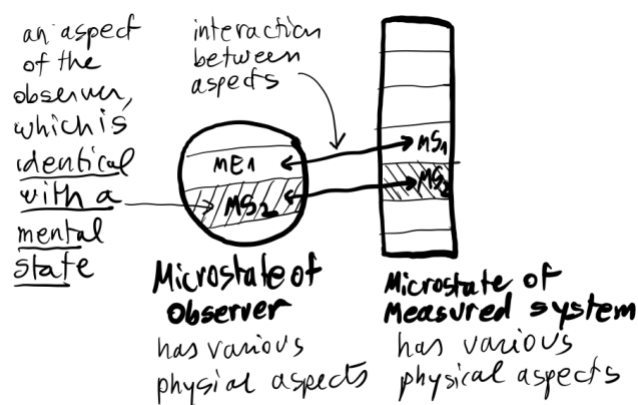 an aspect
of the
observer,
which is
identical
with a
mental
state
interaction
between
aspects
ME1
MS2
MS1
MS2
Microstate of
Observer
has various
physial aspects
Microstate of
Measured system
has various
physical aspects